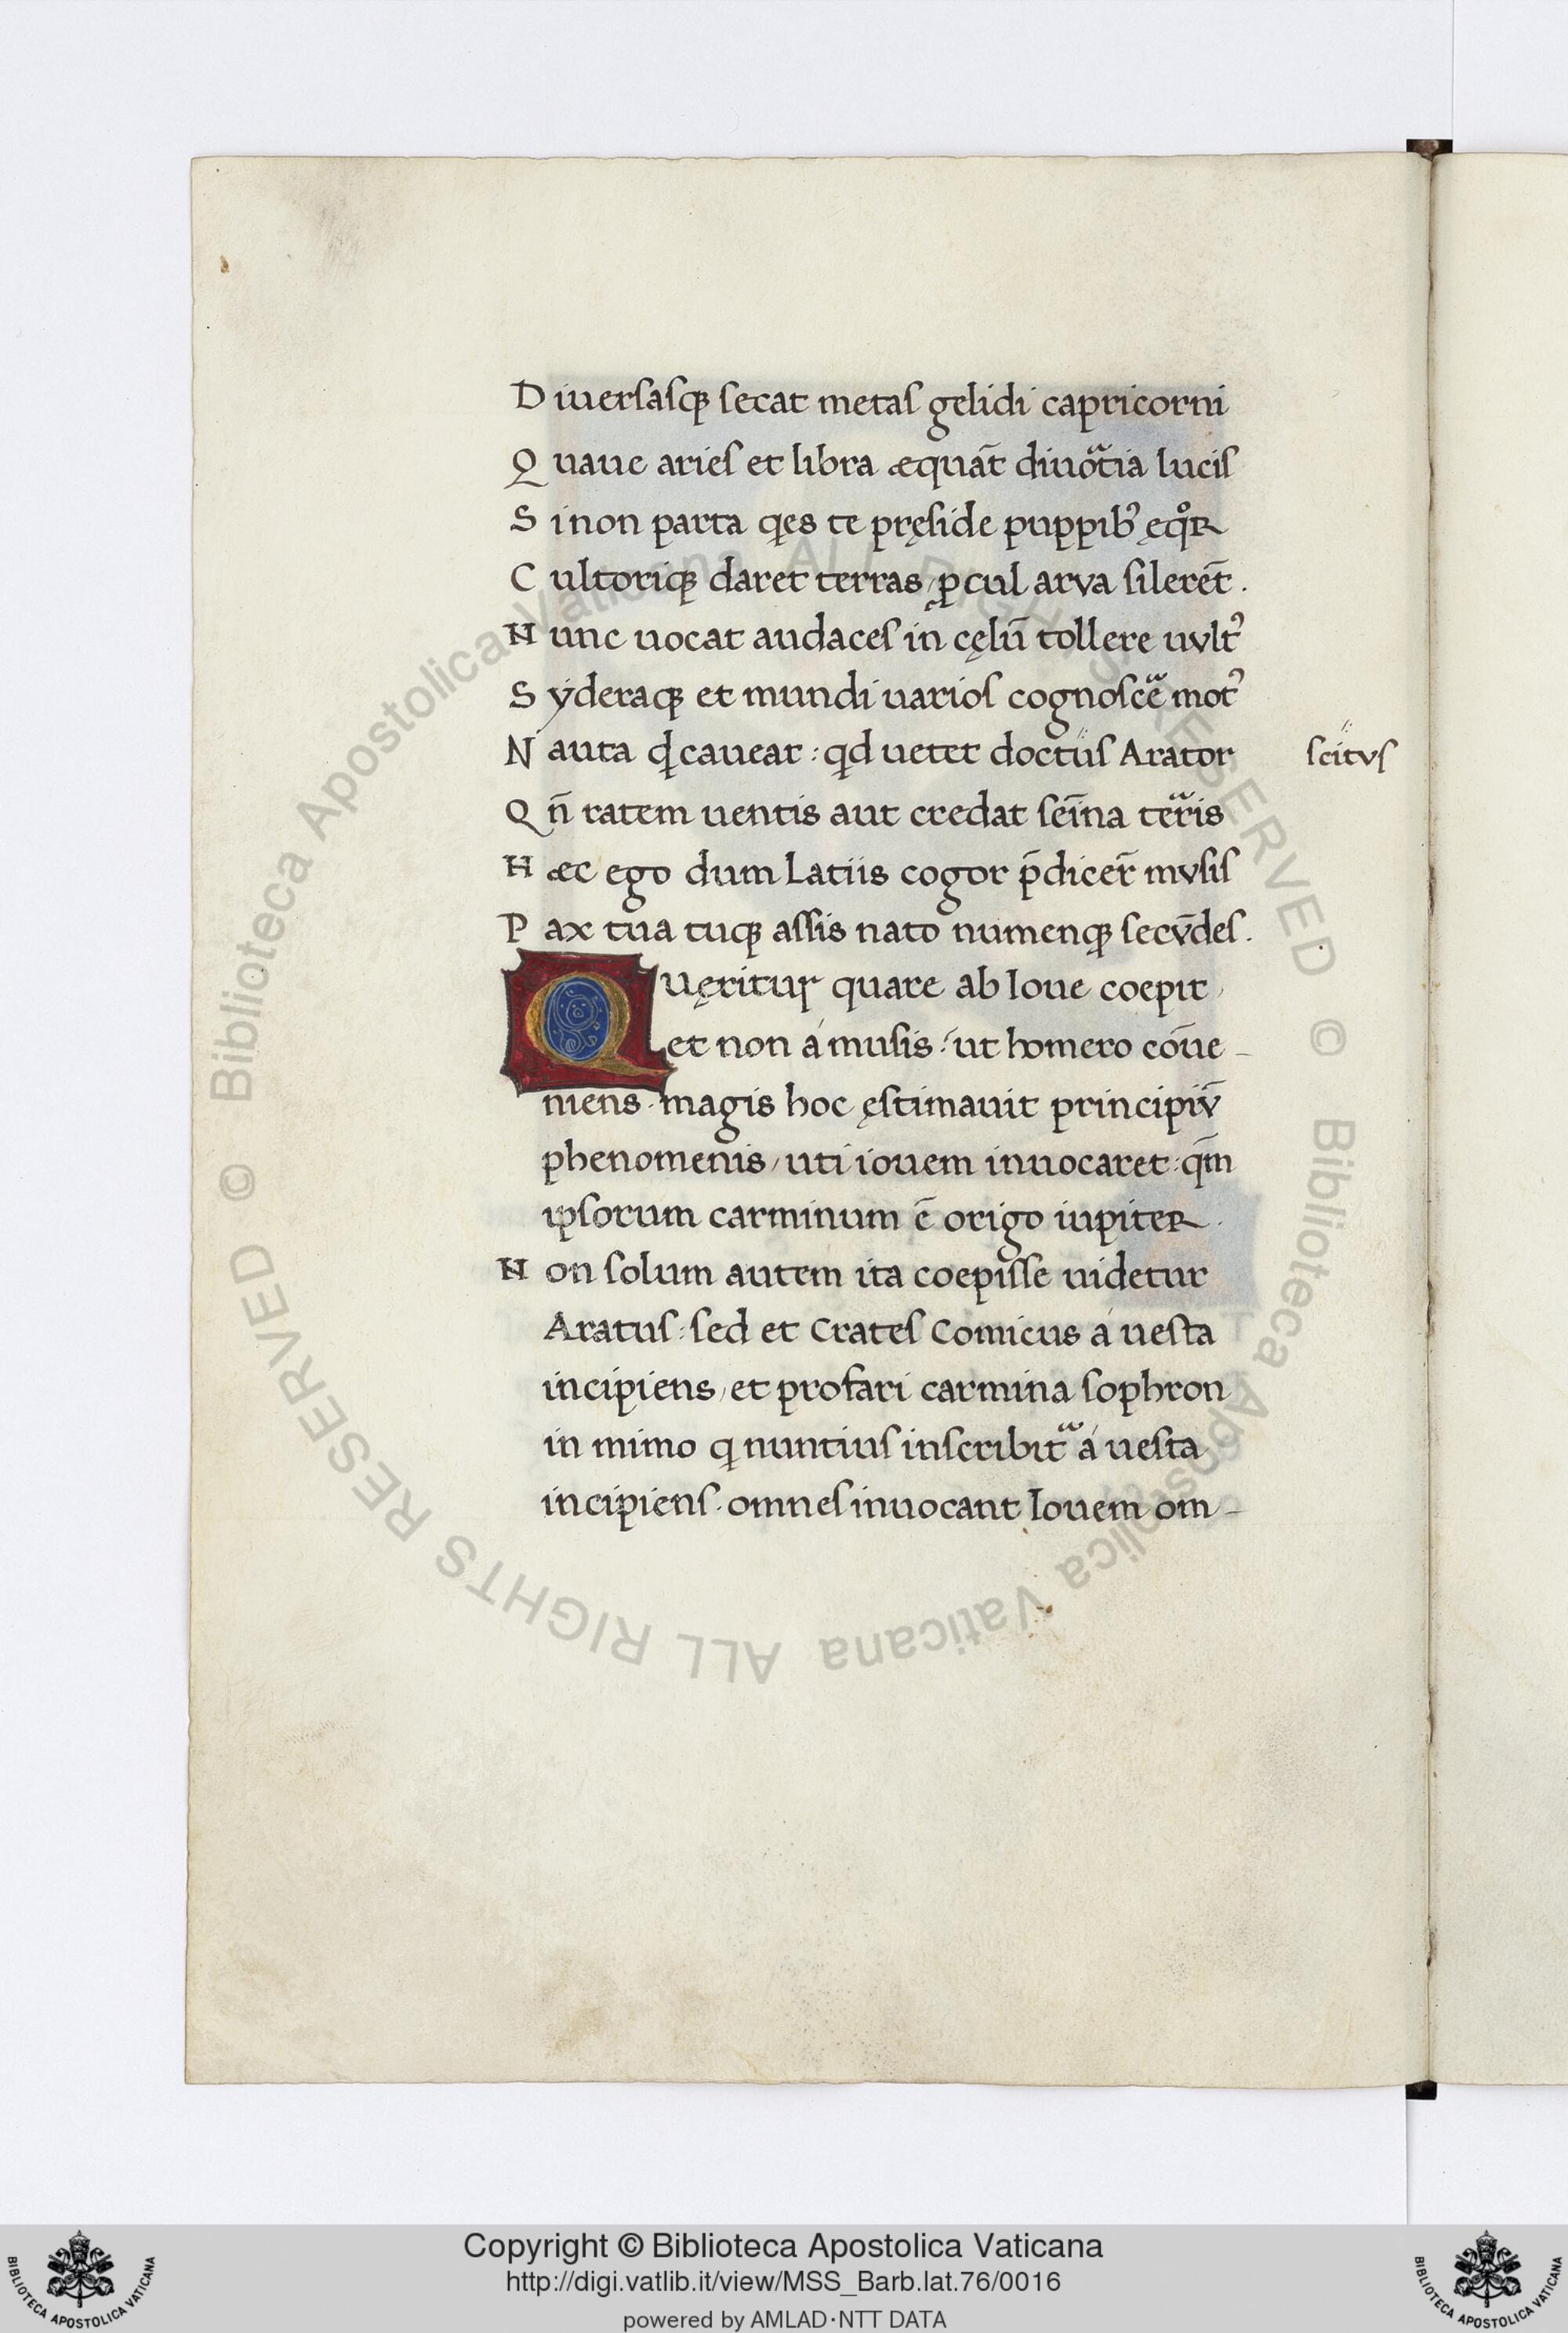 Diuersasq; secat metas gelidi capricorni
Quaue aries et libra æquāt diuoᷓtia lucis
Sinon parta qes te pręside puppibꝰ ęqͦR
Cultoriq; daret terras, ꝓcul arva silerēt.
Nunc uocat audaces in cęlū tollere uvltꝰ
Syderaq; et mundi uarios cognosceᷓ motꝰ
Nauta qd caueat: qd uetet doctus Arator
scitvs
Qn̄ ratem uentis aut credat sem̄na terᷓis
Hæc ego dum Latiis cogor p̄dicer̄ mvsis
Pax tua tuq; assis nato numenq; secv̄des.
Quęritur quare ab Ioue coepit,
et non á musis: ut homero cōue-
niens. magis hoc ęstimauit principiv̄
phenomenis, uti iouem inuocaret: qm̄
ipsorum carminum ē origo iupiteR.
Non solum autem ita coepisse uidetur
Aratus: sed et Crates Comicus á uesta
incipiens, et profari carmina sophron
in mimo q nuntius inscribitᷓ á uesta
incipiens. omnes inuocant Iovem om-
© Biblioteca Apostolica Vaticana ALL RIGHTS RESERVED © Biblioteca Apostolica Vaticana ALL RIGHTS RESERVED
Copyright © Biblioteca Apostolica Vaticana
http://digi.vatlib.it/view/MSS_Barb.lat.76/0016
powered by AMLAD·NTT DATA
BIBLIOTECA APOSTOLICA VATICANA
BIBLIOTECA APOSTOLICA VATICANA